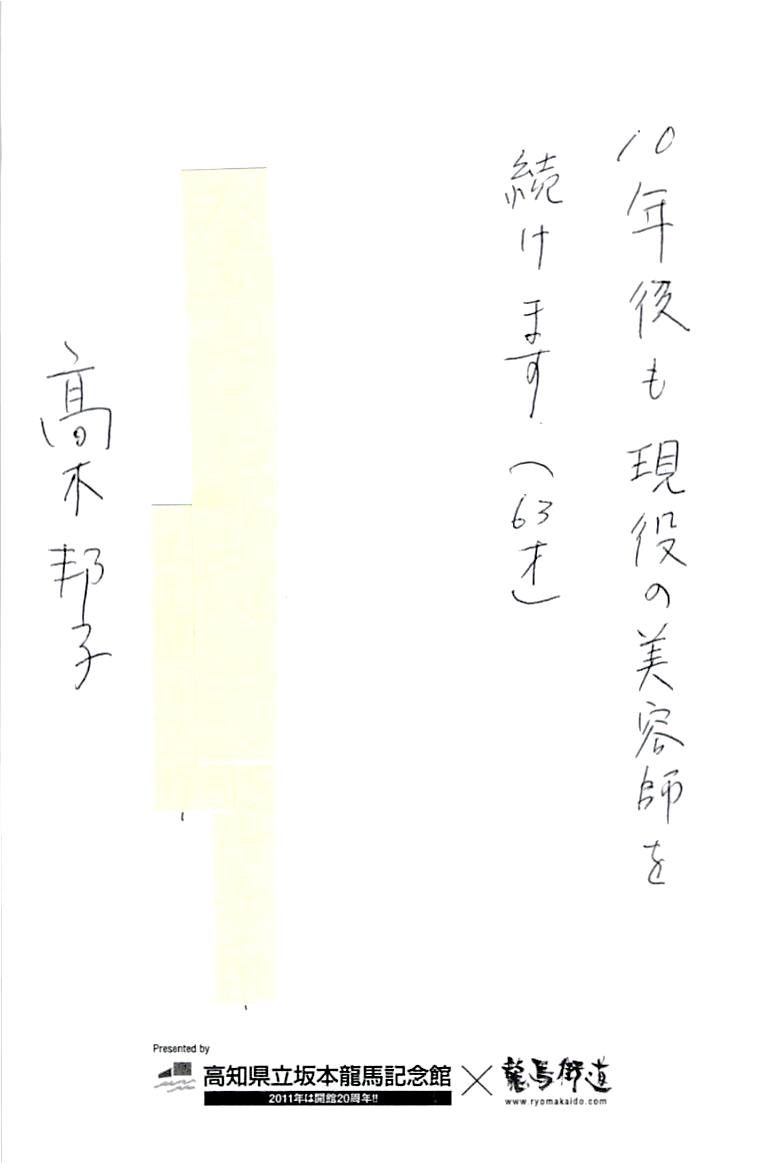 10年後も現役の美容師を
続けます（63才）
高木邦子
Presented by
高知県立坂本龍馬記念館×龍馬街道
2011年は開館20周年!!
www.ryomakaido.com